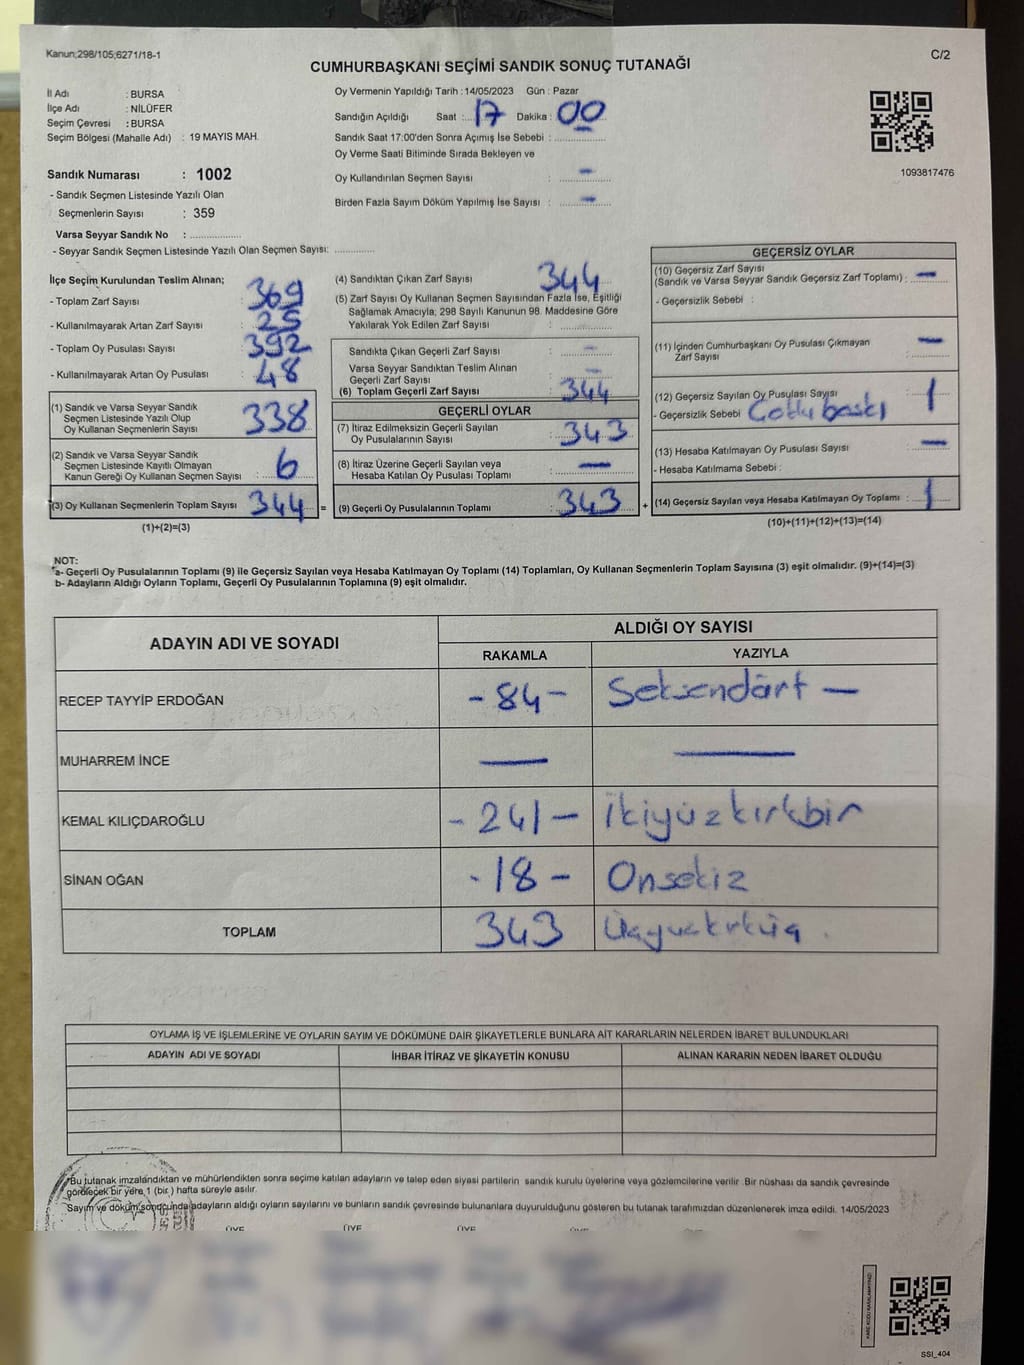 Kanun;298/105;6271/18-1
C/2
CUMHURBAŞKANI SEÇİMİ SANDIK SONUÇ TUTANAĞI
İl Adı : BURSA
İlçe Adı : NİLÜFER
Seçim Çevresi : BURSA
Seçim Bölgesi (Mahalle Adı) : 19 MAYIS MAH.
Sandık Numarası : 1002
- Sandık Seçmen Listesinde Yazılı Olan
Seçmenlerin Sayısı : 359
Varsa Seyyar Sandık No : ..................
- Seyyar Sandık Seçmen Listesinde Yazılı Olan Seçmen Sayısı: ..............
Oy Vermenin Yapıldığı Tarih : 14/05/2023 Gün : Pazar
Sandığın Açıldığı Saat :.... 17 Dakika : 00
Sandık Saat 17:00'den Sonra Açımış İse Sebebi : ..................
Oy Verme Saati Bitiminde Sırada Bekleyen ve
Oy Kullandırılan Seçmen Sayısı : -
Birden Fazla Sayım Döküm Yapılmış İse Sayısı : -
1093817476
İlçe Seçim Kurulundan Teslim Alınan;
- Toplam Zarf Sayısı : 369
- Kullanılmayarak Artan Zarf Sayısı : 25
- Toplam Oy Pusulası Sayısı : 392
- Kullanılmayarak Artan Oy Pusulası : 48
(1) Sandık ve Varsa Seyyar Sandık
Seçmen Listesinde Yazılı Olup
Oy Kullanan Seçmenlerin Sayısı : 338
(2) Sandık ve Varsa Seyyar Sandık
Seçmen Listesinde Kayıtlı Olmayan
Kanun Gereği Oy Kullanan Seçmen Sayısı : 6
(3) Oy Kullanan Seçmenlerin Toplam Sayısı : 344 =
(1)+(2)=(3)
(4) Sandıktan Çıkan Zarf Sayısı : 344
(5) Zarf Sayısı Oy Kullanan Seçmen Sayısından Fazla İse, Eşitliği
Sağlamak Amacıyla, 298 Sayılı Kanunun 98. Maddesine Göre
Yakılarak Yok Edilen Zarf Sayısı : ..................
Sandıkta Çıkan Geçerli Zarf Sayısı : -
Varsa Seyyar Sandıktan Teslim Alınan
Geçerli Zarf Sayısı : -
(6) Toplam Geçerli Zarf Sayısı : 344
GEÇERLİ OYLAR
(7) İtiraz Edilmeksizin Geçerli Sayılan
Oy Pusulalarının Sayısı : 343
(8) İtiraz Üzerine Geçerli Sayılan veya
Hesaba Katılan Oy Pusulası Toplamı : —
(9) Geçerli Oy Pusulalarının Toplamı : 343 +
GEÇERSİZ OYLAR
(10) Geçersiz Zarf Sayısı
(Sandık ve Varsa Seyyar Sandık Geçersiz Zarf Toplamı) : —
- Geçersizlik Sebebi :
(11) İçinden Cumhurbaşkanı Oy Pusulası Çıkmayan
Zarf Sayısı : —
(12) Geçersiz Sayılan Oy Pusulası Sayısı : 1
- Geçersizlik Sebebi baskı
(13) Hesaba Katılmayan Oy Pusulası Sayısı : —
- Hesaba Katılmama Sebebi :
(14) Geçersiz Sayılan veya Hesaba Katılmayan Oy Toplamı : 1
(10)+(11)+(12)+(13)=(14)
NOT:
a- Geçerli Oy Pusulalarının Toplamı (9) ile Geçersiz Sayılan veya Hesaba Katılmayan Oy Toplamı (14) Toplamları, Oy Kullanan Seçmenlerin Toplam Sayısına (3) eşit olmalıdır. (9)+(14)=(3)
b- Adayların Aldığı Oyların Toplamı, Geçerli Oy Pusulalarının Toplamına (9) eşit olmalıdır.
ADAYIN ADI VE SOYADI
ALDIĞI OY SAYISI
RAKAMLA YAZIYLA
RECEP TAYYİP ERDOĞAN -84- Seksendört —
MUHARREM İNCE — —
KEMAL KILIÇDAROĞLU -241- İkiyüzkırkbir
SİNAN OĞAN -18- Onsekiz
TOPLAM 343 Üçyüzkırküç .
OYLAMA İŞ VE İŞLEMLERİNE VE OYLARIN SAYIM VE DÖKÜMÜNE DAİR ŞİKAYETLERLE BUNLARA AİT KARARLARIN NELERDEN İBARET BULUNDUKLARI
ADAYIN ADI VE SOYADI İHBAR İTİRAZ VE ŞİKAYETİN KONUSU ALINAN KARARIN NEDEN İBARET OLDUĞU
*Bu tutanak imzalandıktan ve mühürlendikten sonra seçime katılan adayların ve talep eden siyasi partilerin sandık kurulu üyelerine veya gözlemcilerine verilir. Bir nüshası da sandık çevresinde
görülecek bir yere 1 (bir) hafta süreyle asılır.
Sayım ve döküm sonucunda adayların aldığı oyların sayılarını ve bunların sandık çevresinde bulunanlara duyurulduğunu gösteren bu tutanak tarafımızdan düzenlenerek imza edildi. 14/05/2023
ÜYE ÜYE ÜYE
SSI_404